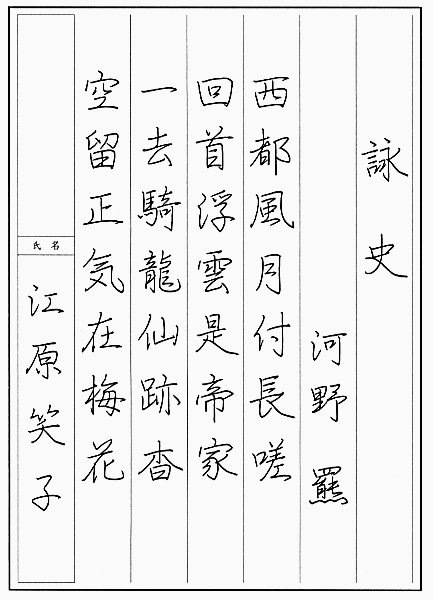 詠史
河野羆
西都風月付長嗟
回首浮雲是帝家
一去騎龍仙跡杳
空留正気在梅花
氏名
江原笑子